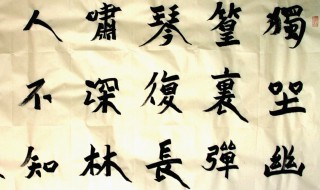 獨坐幽
篁裏彈
琴復長
嘯深林
人不知